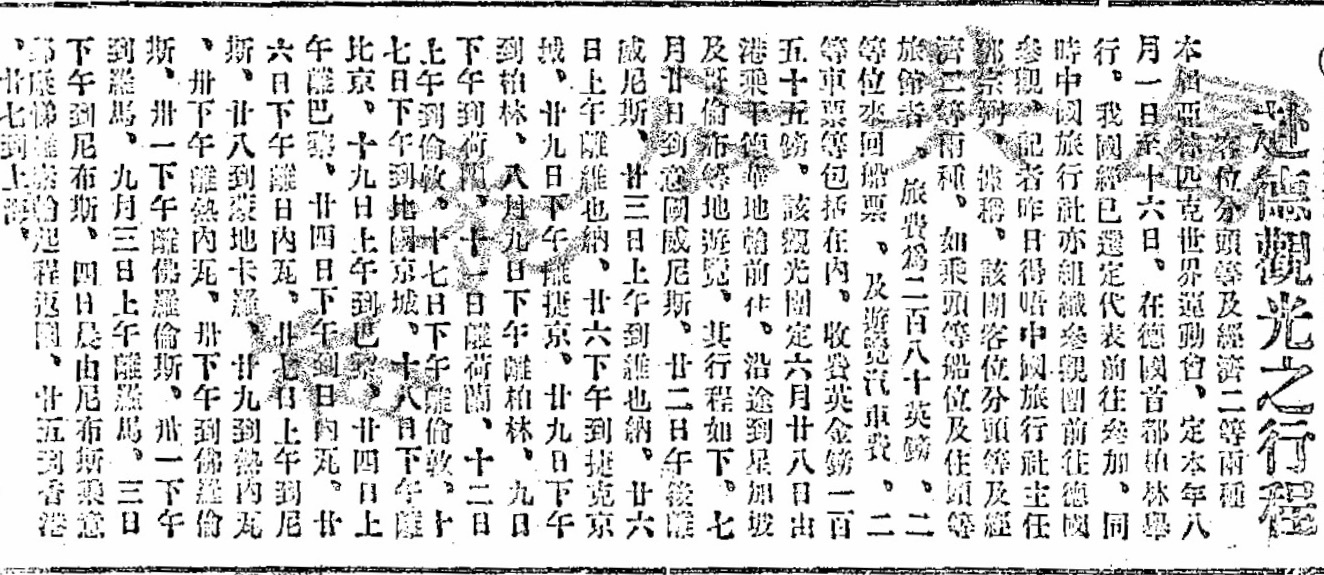 赴德觀光之行程
客位分頭等及經濟二等兩種
本屆亞林匹克世界運動會、定本年八
月一日至十六日、在德國首都柏林舉
行、我國經已選定代表前往參加、同
時中國旅行社亦組織參觀團前往德國
參觀、記者昨日得晤中國旅行社主任
鄧宗弼、據稱、該團客位分頭等及經
濟二等兩種、如乘頭等船位及住頭等
旅館者、旅費為二百八十英鎊、二
等位來回船票、及遊覽汽車費、二
等車票等包括在內、收費英金鎊一百
五十五鎊、該觀光團定六月廿八日由
港乘平德華地輪前往、沿途到星加坡
及哥倫布等地遊覽、其行程如下、七
月廿日到意國威尼斯、廿二日午後離
威尼斯、廿三日上午到維也納、廿六
日上午離維也納、廿六下午到捷克京
城、廿九日下午離捷京、廿九日下午
到柏林、八月九日下午離柏林、九日
下午到荷蘭、十一日離荷蘭、十二日
上午到倫敦、十七日下午離倫敦、十
七日下午到比國京城、十八日下午離
比京、十九日上午到巴黎、廿四日上
午離巴黎、廿四日下午到日內瓦、廿
六日下午離日內瓦、廿七日上午到尼
斯、廿八到蒙地卡羅、廿九到熱內瓦
、卅下午離熱內瓦、卅下午到佛羅倫
斯、卅一下午離佛羅倫斯、卅一下午
到羅馬、九月三日上午離羅馬、三日
下午到尼布斯、四日晨由尼布斯乘意
輪起程返國、廿五到香港
、廿七到上海、